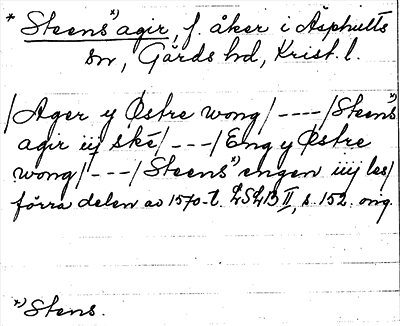 * Steens*) agir, f. åker i Äsphults
sn, Gärds hd, Krist. l.
/Ager y Østre wong/----/Steens*)
agir iij ske/---/Eng y Østre
wong/---/Steens*) engen iiij les/
förra delen av 1570-t. LSLB II, s. 152. orig.
*) Stens.